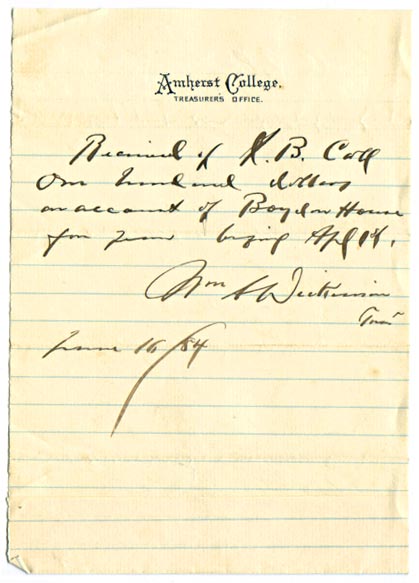 Amherst College.
TREASURER'S OFFICE.
Received of K. B. Coll
One hundred dollars
on account of Boydon House
for year begng Apl 1st.
Wm A Dickinson
Treas
June 16/84